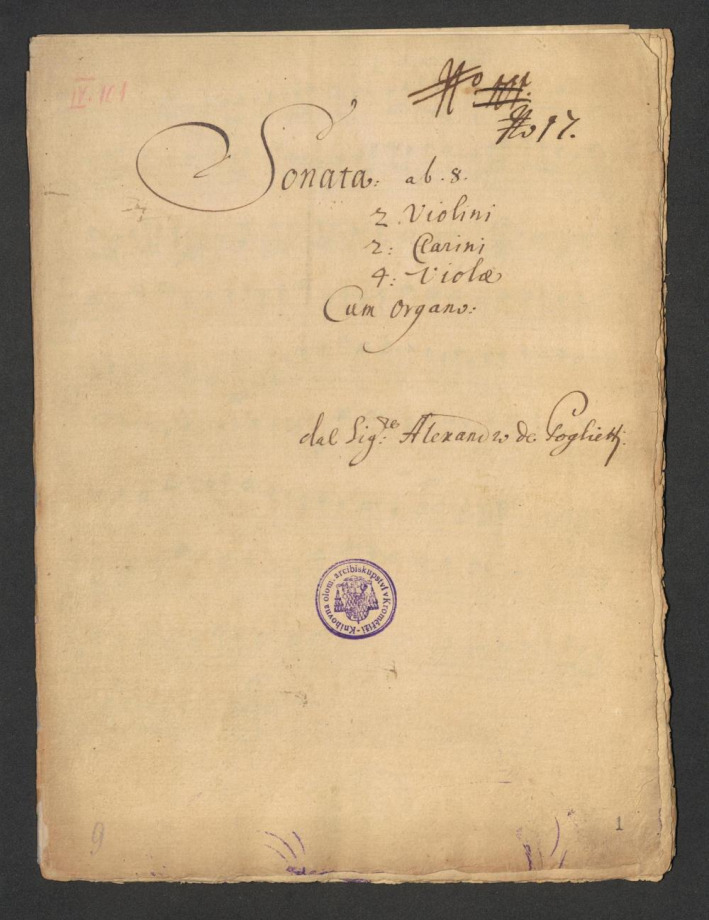 IV. 101
No
No 17.
Sonata: ab. 8.
2. Violini
2: Clarini
4: Violæ
Cum Organo:
dal Sig:re Alexandro de Poglietti.
Knihovna olom. arcibiskupství v Kroměříži
9
1